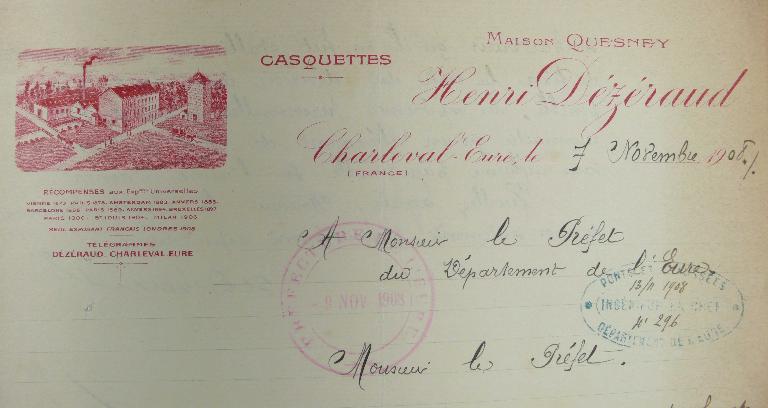 MAISON QUESNEY
CASQUETTES
Henri Dézéraud
Charleval-Eure, le 7 Novembre 1908.
(FRANCE)
RÉCOMPENSES aux Expons Universelles
VIENNE 1873, PARIS 1878, AMSTERDAM 1883, ANVERS 1885
BARCELONE 1888, PARIS 1889, ANVERS 1894, BRUXELLES 1897
PARIS 1900, ST LOUIS 1904, MILAN 1906
SEUL EXPOSANT FRANÇAIS LONDRES 1908
TÉLÉGRAMMES
DÉZÉRAUD CHARLEVAL-EURE
A Monsieur le Préfet
du Département de l'Eure.
PRÉFECTURE EURE
9 NOV 1908
PONTS ET CHAUSSÉES
13/11 1908
INGÉNIEUR EN CHEF
N° 296
DÉPARTEMENT DE L'EURE
Monsieur le Préfet.